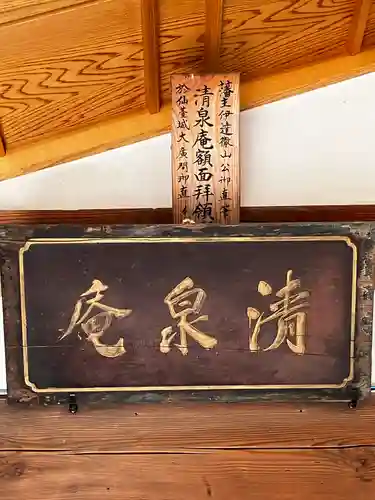 藩主伊達徹山公御直筆
清泉庵額面拝領
於仙臺城大廣間御直
清泉庵